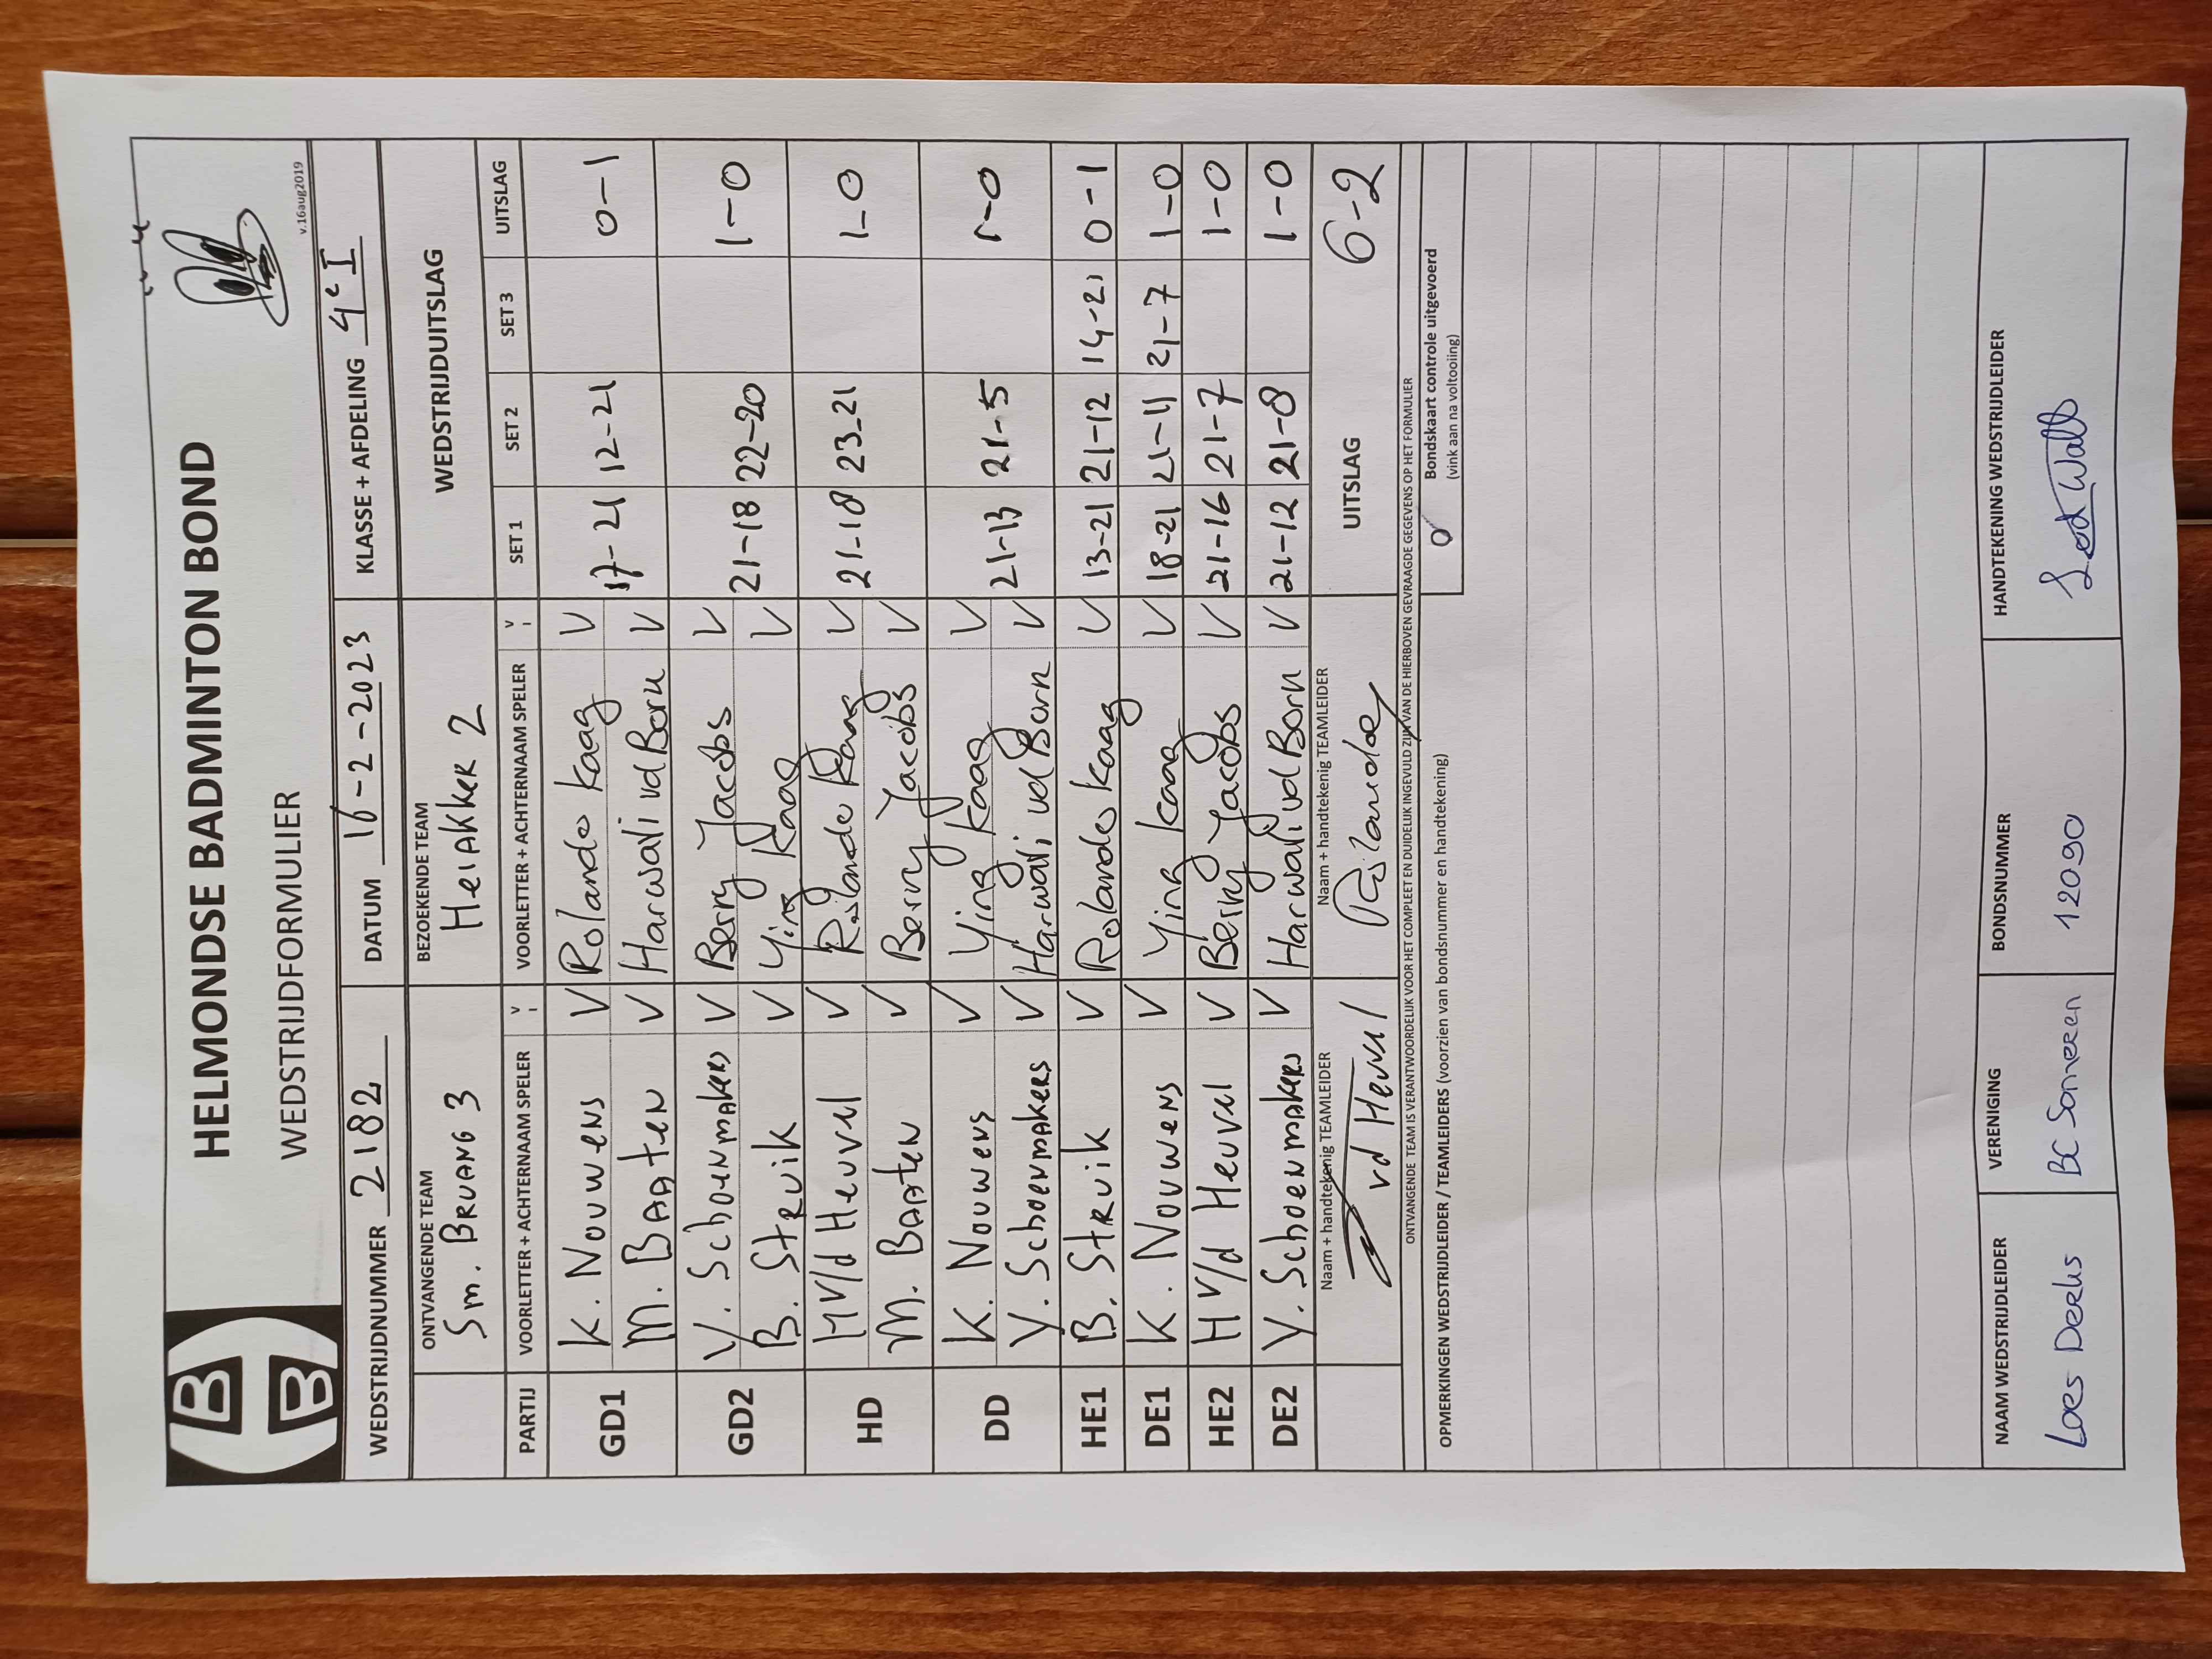 HELMONDSE BADMINTON BOND
WEDSTRIJDFORMULIER
v.16aug2019
WEDSTRIJDNUMMER 2182 DATUM 16-2-2023 KLASSE + AFDELING 4e I
ONTVANGENDE TEAM BEZOEKENDE TEAM WEDSTRIJDUITSLAG
Sm. BRUANG 3 HeiAkker 2
PARTIJ VOORLETTER + ACHTERNAAM SPELER V VOORLETTER + ACHTERNAAM SPELER V SET 1 SET 2 SET 3 UITSLAG
GD1 K. Nouwens V Rolande Kaag V 17-21 12-21 0-1
M. Baaten V Harwati vd Born V
GD2 Y. Schoenmakers V Berry Jacobs V 21-18 22-20 1-0
B. Struik V Ying Kaag V
HD H v/d Heuvel V Rolande Kaag V 21-18 23-21 1-0
M. Baaten V Berry Jacobs V
DD K. Nouwens V Ying Kaag V 21-13 21-5 1-0
Y. Schoenmakers V Harwati vd Born V
HE1 B. Struik V Rolande Kaag V 13-21 21-12 14-21 0-1
DE1 K. Nouwens V Ying Kaag V 18-21 21-11 21-7 1-0
HE2 H v/d Heuvel V Berry Jacobs V 21-16 21-7 1-0
DE2 Y. Schoenmakers V Harwati vd Born V 21-12 21-8 1-0
Naam + handtekenig TEAMLEIDER Naam + handtekenig TEAMLEIDER UITSLAG 6-2
vd Heuvel
ONTVANGENDE TEAM IS VERANTWOORDELIJK VOOR HET COMPLEET EN DUIDELIJK INGEVULD ZIJN VAN DE HIERBOVEN GEVRAAGDE GEGEVENS OP HET FORMULIER
OPMERKINGEN WEDSTRIJDLEIDER / TEAMLEIDERS (voorzien van bondsnummer en handtekening) Bondskaart controle uitgevoerd
(vink aan na voltooiing)
NAAM WEDSTRIJDLEIDER VERENIGING BONDSNUMMER HANDTEKENING WEDSTRIJDLEIDER
Loes Derks BC Someren 12090